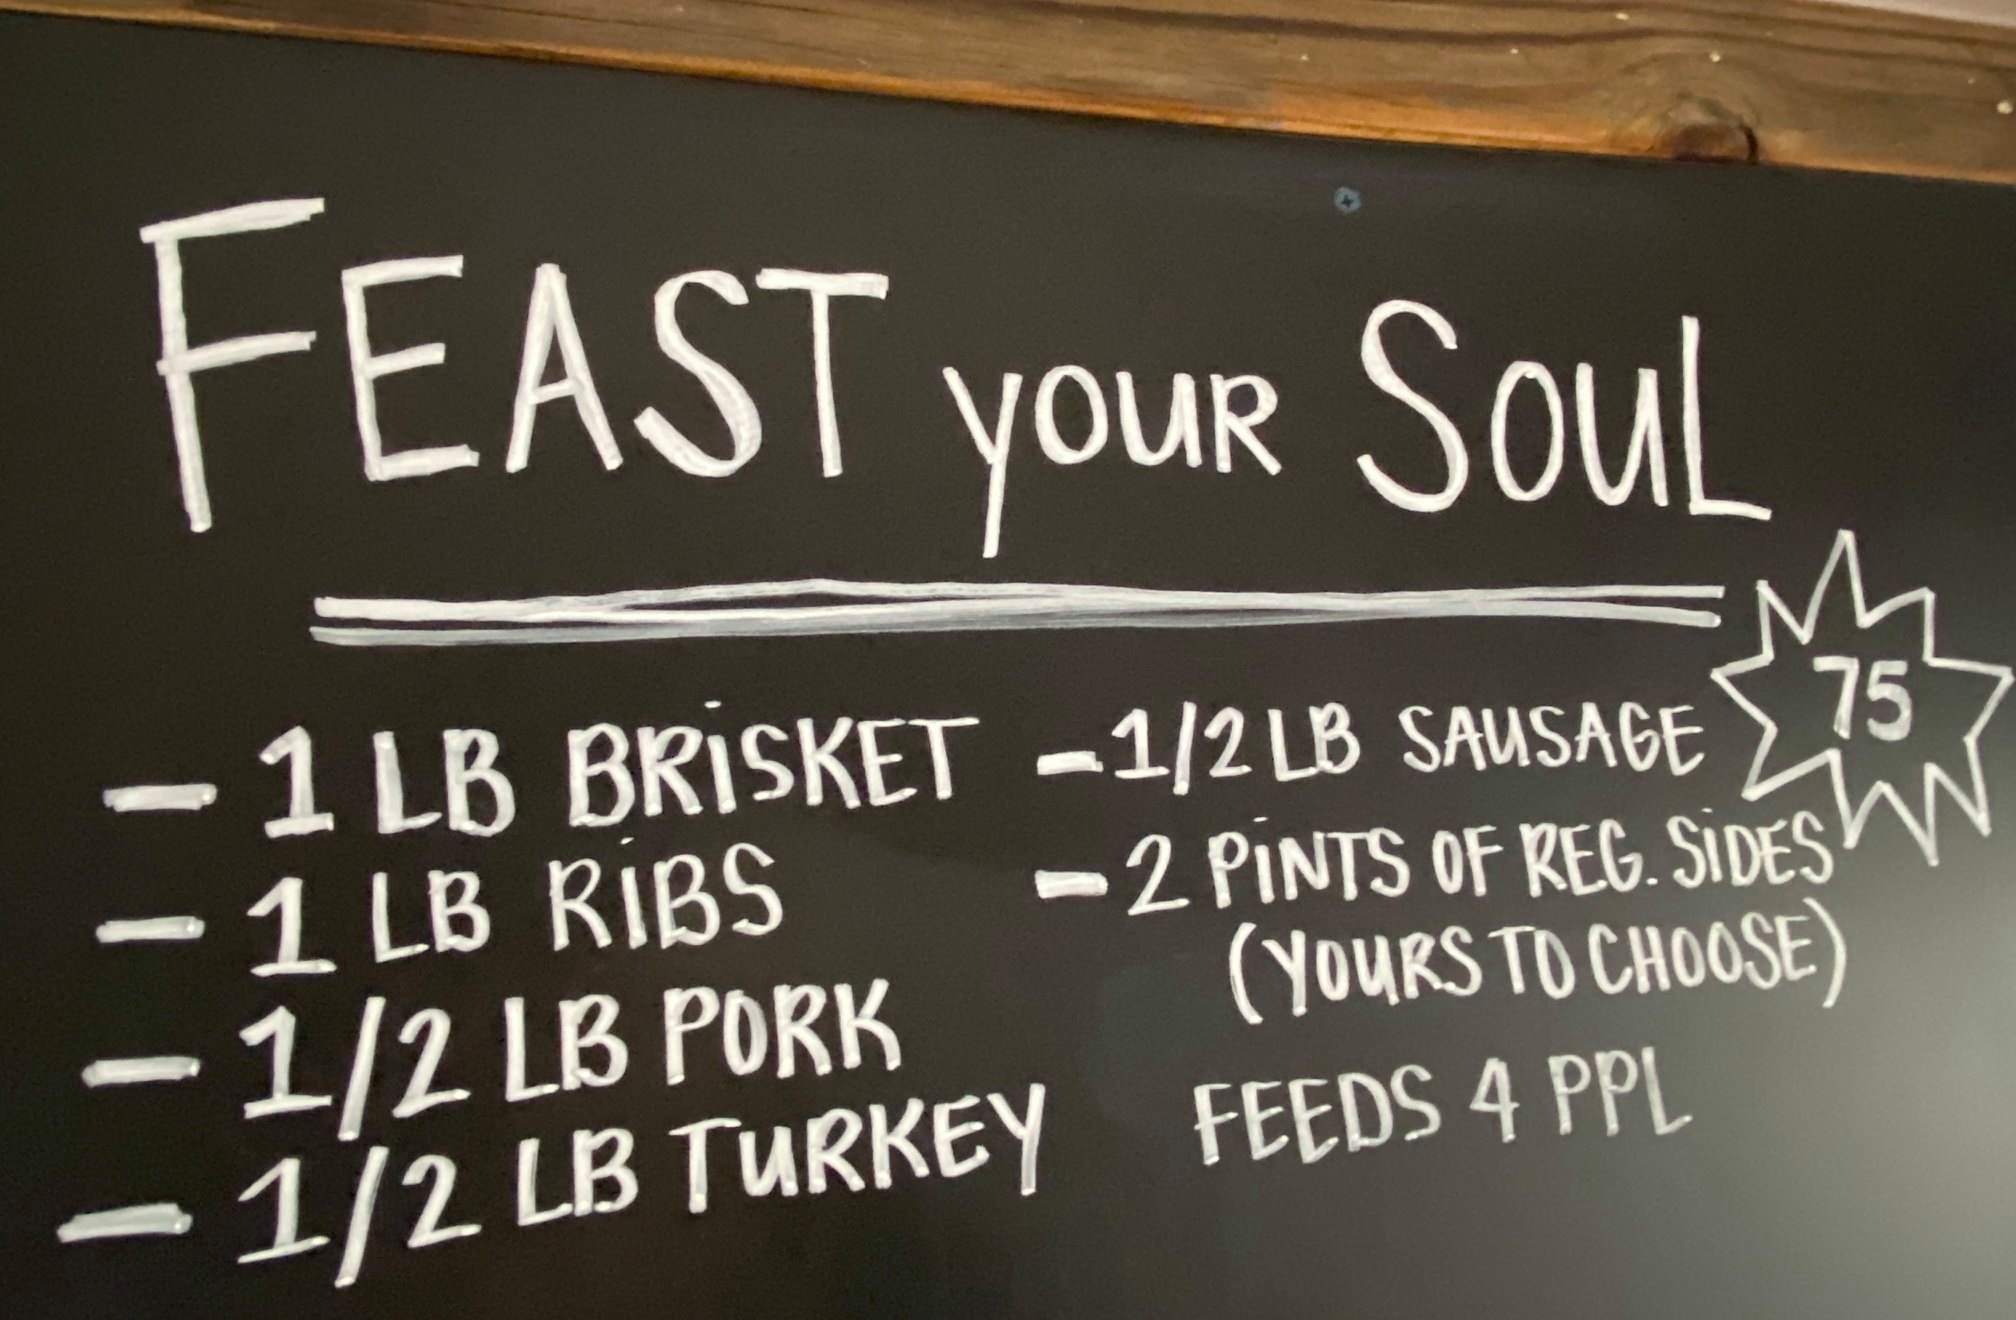 FEAST YOUR SOUL
- 1 LB BRISKET
- 1 LB RIBS
- 1/2 LB PORK
- 1/2 LB TURKEY
- 1/2 LB SAUSAGE
- 2 PINTS OF REG. SIDES
(YOURS TO CHOOSE)
FEEDS 4 PPL
75